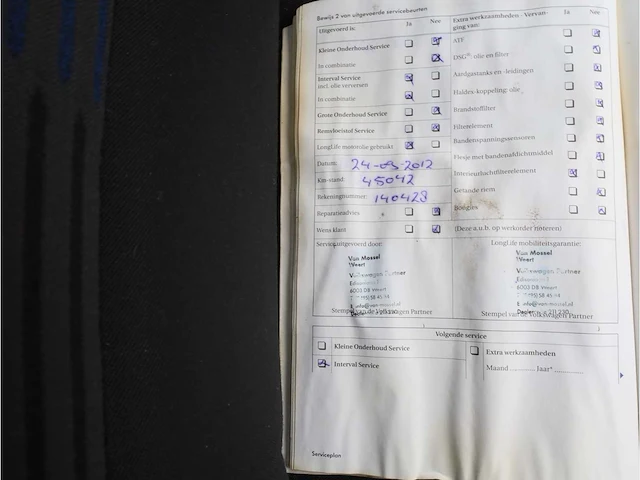 Bewijs 2 van uitgevoerde servicebeurten
Uitgevoerd is: Ja Nee
Kleine Onderhoud Service
In combinatie
Interval Service
incl. olie verversen
In combinatie
Grote Onderhoud Service
Remvloeistof Service
LongLife motorolie gebruikt
Datum: 24-09-2012
Km-stand: 45042
Rekeningnummer: 140428
Reparatieadvies
Wens klant
Extra werkzaamheden - Vervanging van: Ja Nee
ATF
DSG®: olie en filter
Aardgastanks en -leidingen
Haldex-koppeling: olie
Brandstoffilter
Filterelement
Bandenspanningssensoren
Flesje met bandenafdichtmiddel
Interieurluchtfilterelement
Getande riem
Bougies
(Deze a.u.b. op werkorder noteren)
Service uitgevoerd door:
Van Mossel
Weert
Volkswagen Partner
6003 DB Weert
Stempel van de Volkswagen Partner
LongLife mobiliteitsgarantie:
Van Mossel
Weert
Volkswagen Partner
6003 DB Weert
Stempel van de Volkswagen Partner
Volgende service
Kleine Onderhoud Service
Interval Service
Extra werkzaamheden
Maand .......... Jaar* ..........
Serviceplan